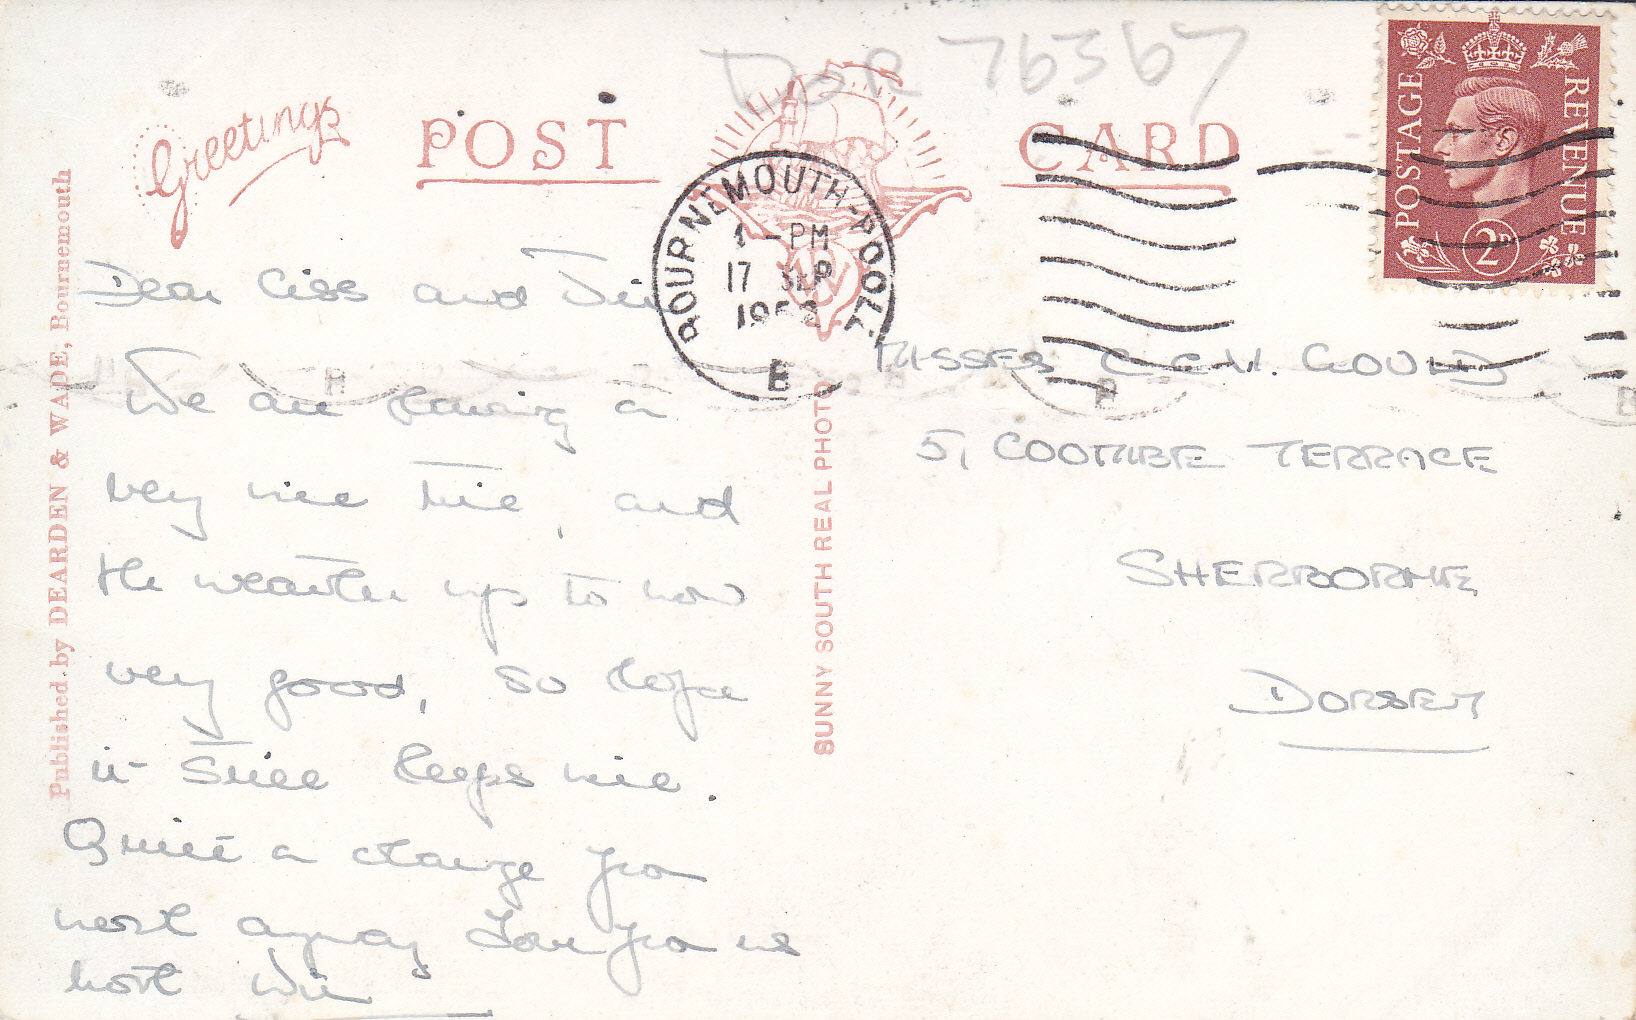 DOR 76367
Greetings
POST CARD
POSTAGE REVENUE
2D
BOURNEMOUTH-POOLE
-PM
17 SEP
195
B
Published by DEARDEN & WADE, Bournemouth
SUNNY SOUTH REAL PHOTO
Dear Ciss and
We are having a
very nice time, and
the weather up to now
very good, so hope
it still keeps nice.
Quite a change from
work anyway Love from us
both Win
MISSES C. & W. GOULD
5, COOMBE TERRACE
SHERBORNE
DORSET